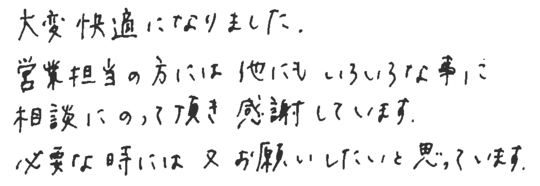 大変快適になりました.
営業担当の方には他にもいろいろな事に
相談にのって頂き感謝しています.
必要な時には又お願いしたいと思っています.